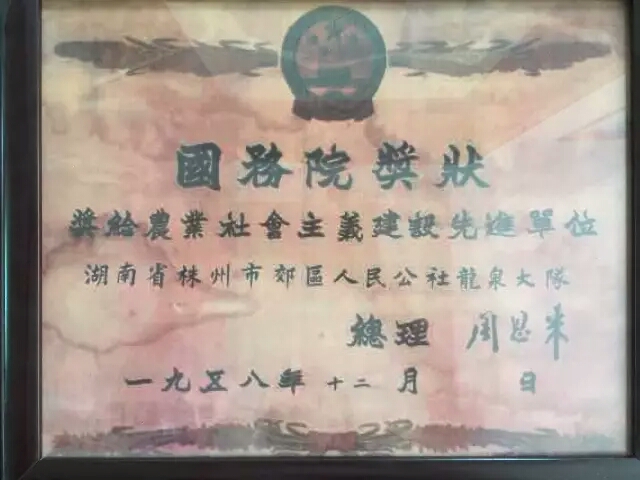 國務院獎狀
獎給農業社會主義建設先進單位
湖南省株州市郊區人民公社龍泉大隊
總理 周恩来
一九五八年 十二月 日